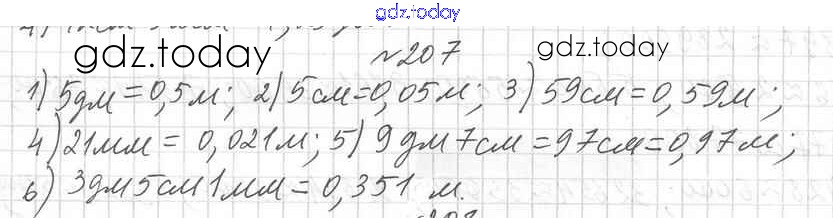 gdz.today
gdz.today
gdz.today
№207
1) 5дм=0,5м; 2) 5см=0,05м; 3) 59см=0,59м;
4) 21мм = 0,021м; 5) 9дм7см=97см=0,97м;
6) 3дм5см1мм=0,351 м.